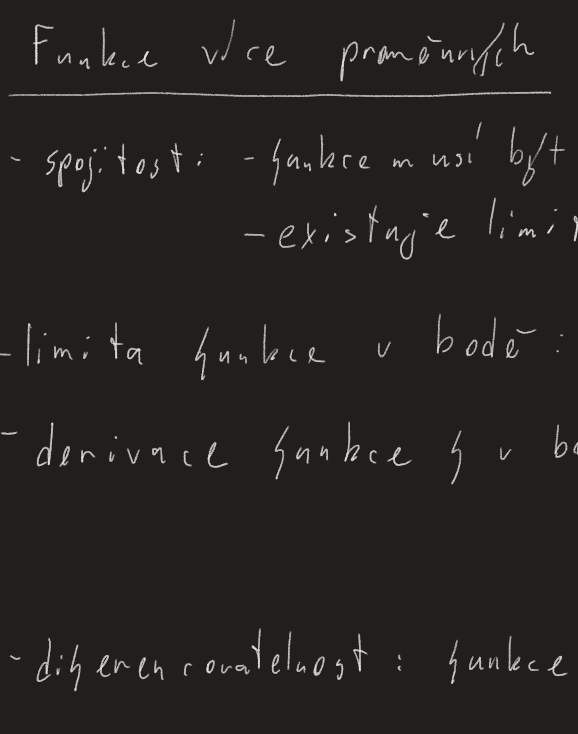 Funkce více proměnných
- spojitost: - funkce musí být
- existuje limi
- limita funkce v bodě:
- derivace funkce f v bo
- diferencovatelnost: funkce